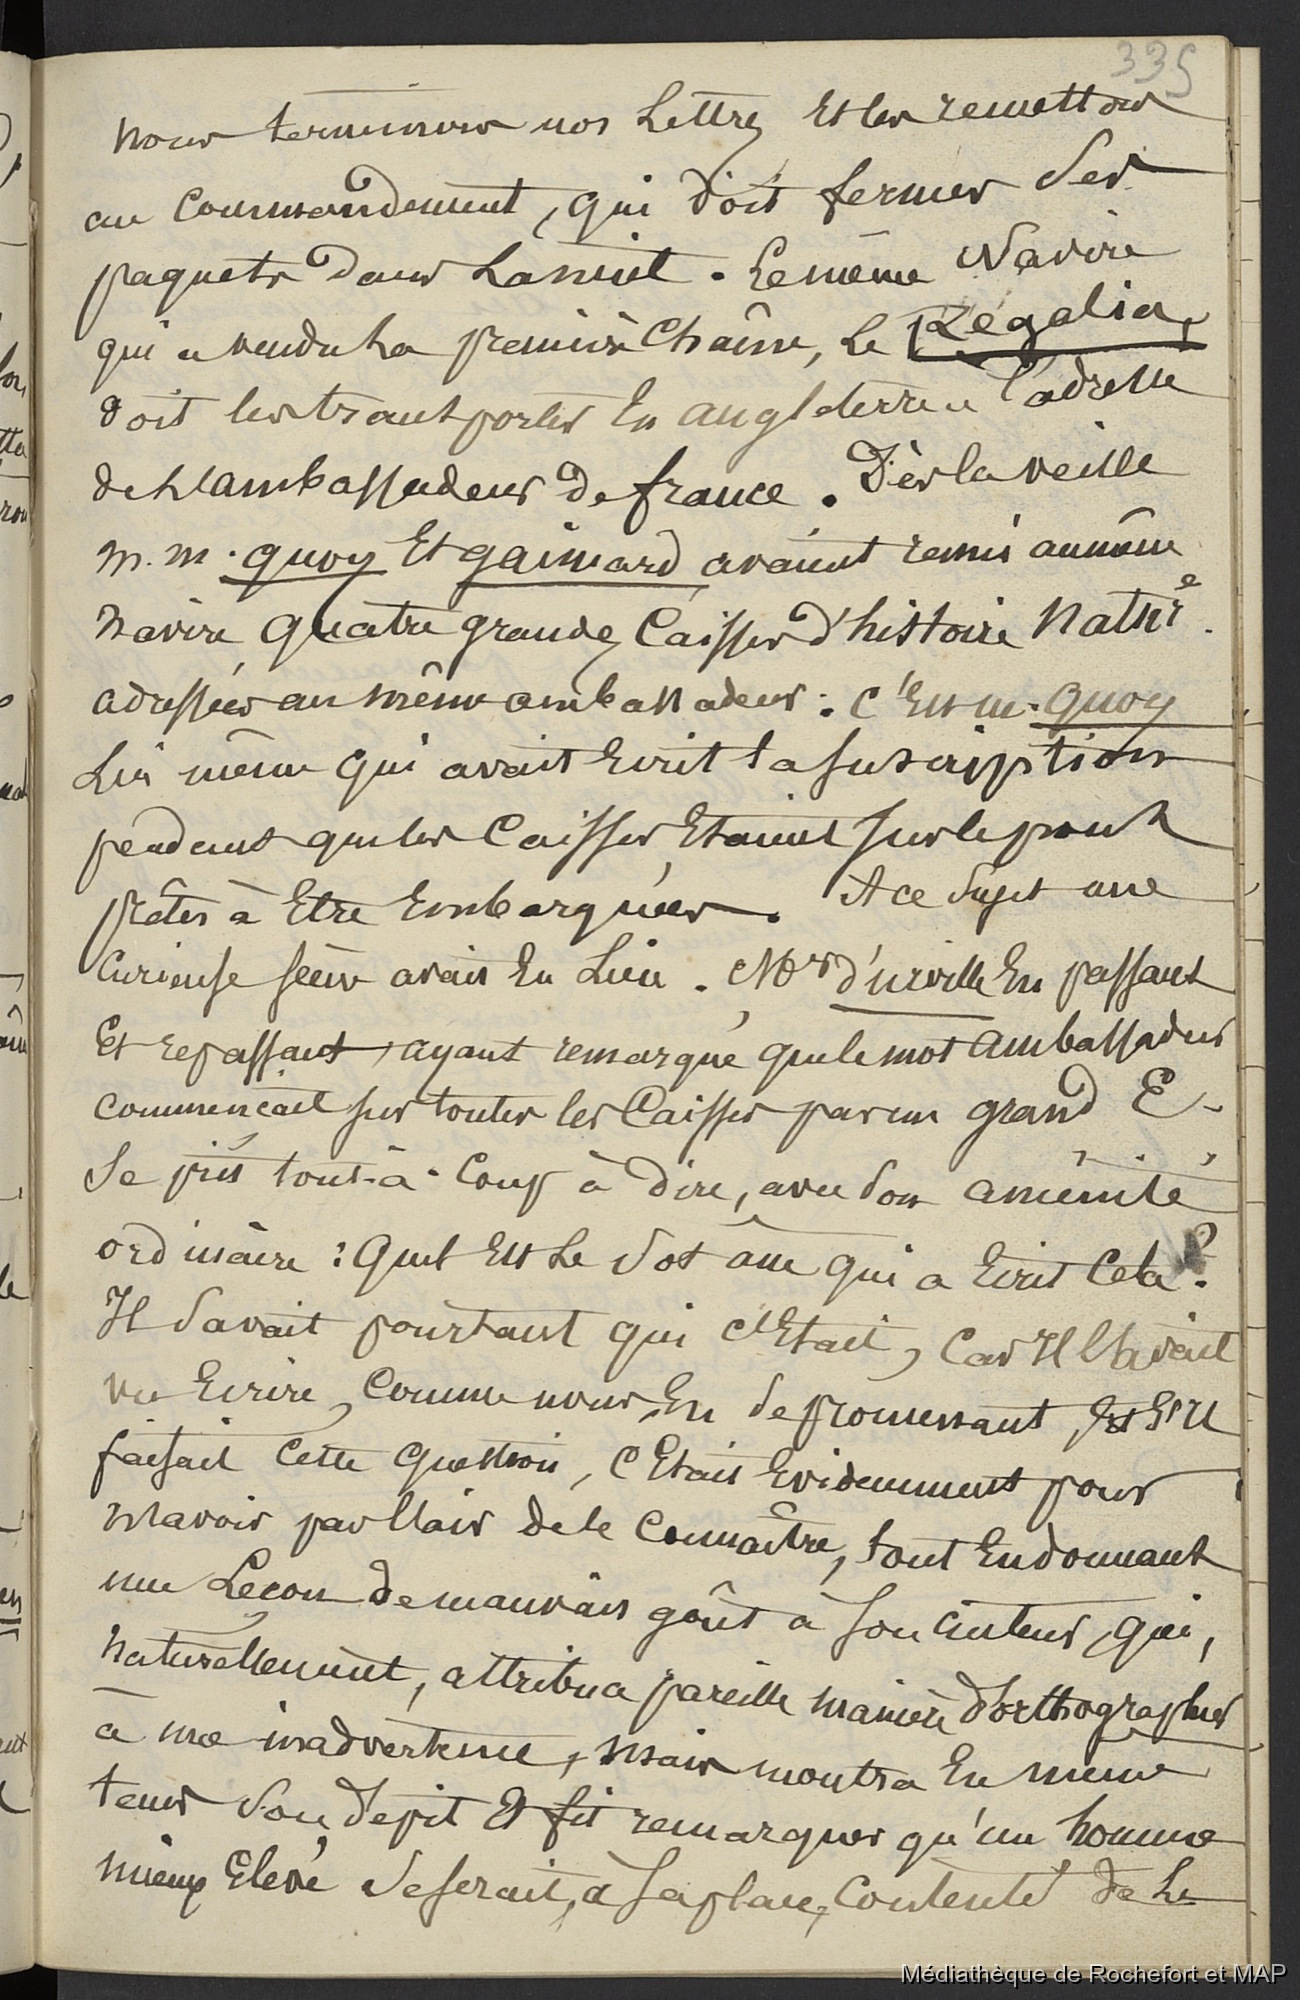 335
nous terminons nos Lettres Et les remettons
au Commandement, qui doit fermer Ses
paquets dans La nuit. Le même Navire
qui a vendu La première Chaîne, Le Régalia,
doit les transporter En angleterre a l'adresse
de L'ambassadeur de france. Dès la veille
m. m. quoy Et gaimard avaient remis au même
navire quatre grandes Caisses d'histoire Natlle.
adressées au même ambassadeur : C'Est m. quoy
Lui même qui avait Ecrit la Suscription
pendant que les Caisses Etaient sur le pont
prêtes à Etre Embarquées. A ce Sujet une
Curieuse scène avait Eu Lieu. Mr d'urville En passant
Et repassant, ayant remarqué que le mot ambassadeur
commençait sur toutes les Caisses par un grand E-
Se prit tout-à-Coup à dire, avec Son aménité
ordinaire : Quel Est Le Sot âne qui a Ecrit Cela ?
Il Savait pourtant qui C'Etait, Car Il L'avait
vu Ecrire, Comme nous, En Se promenant, Et S'Il
faisait Cette Question, C'Etait Evidemment pour
n'avoir pas L'air de le Connaître, tout En donnant
une Leçon de mauvais goût à son auteur, qui,
naturellement, attribua pareille manière d'orthographier
à une inadvertence, mais montra En même
tems Son dépit Et fit remarquer qu'un homme
mieux Elevé Se serait, à Sa place, Contenté de Le
Médiathèque de Rochefort et MAP